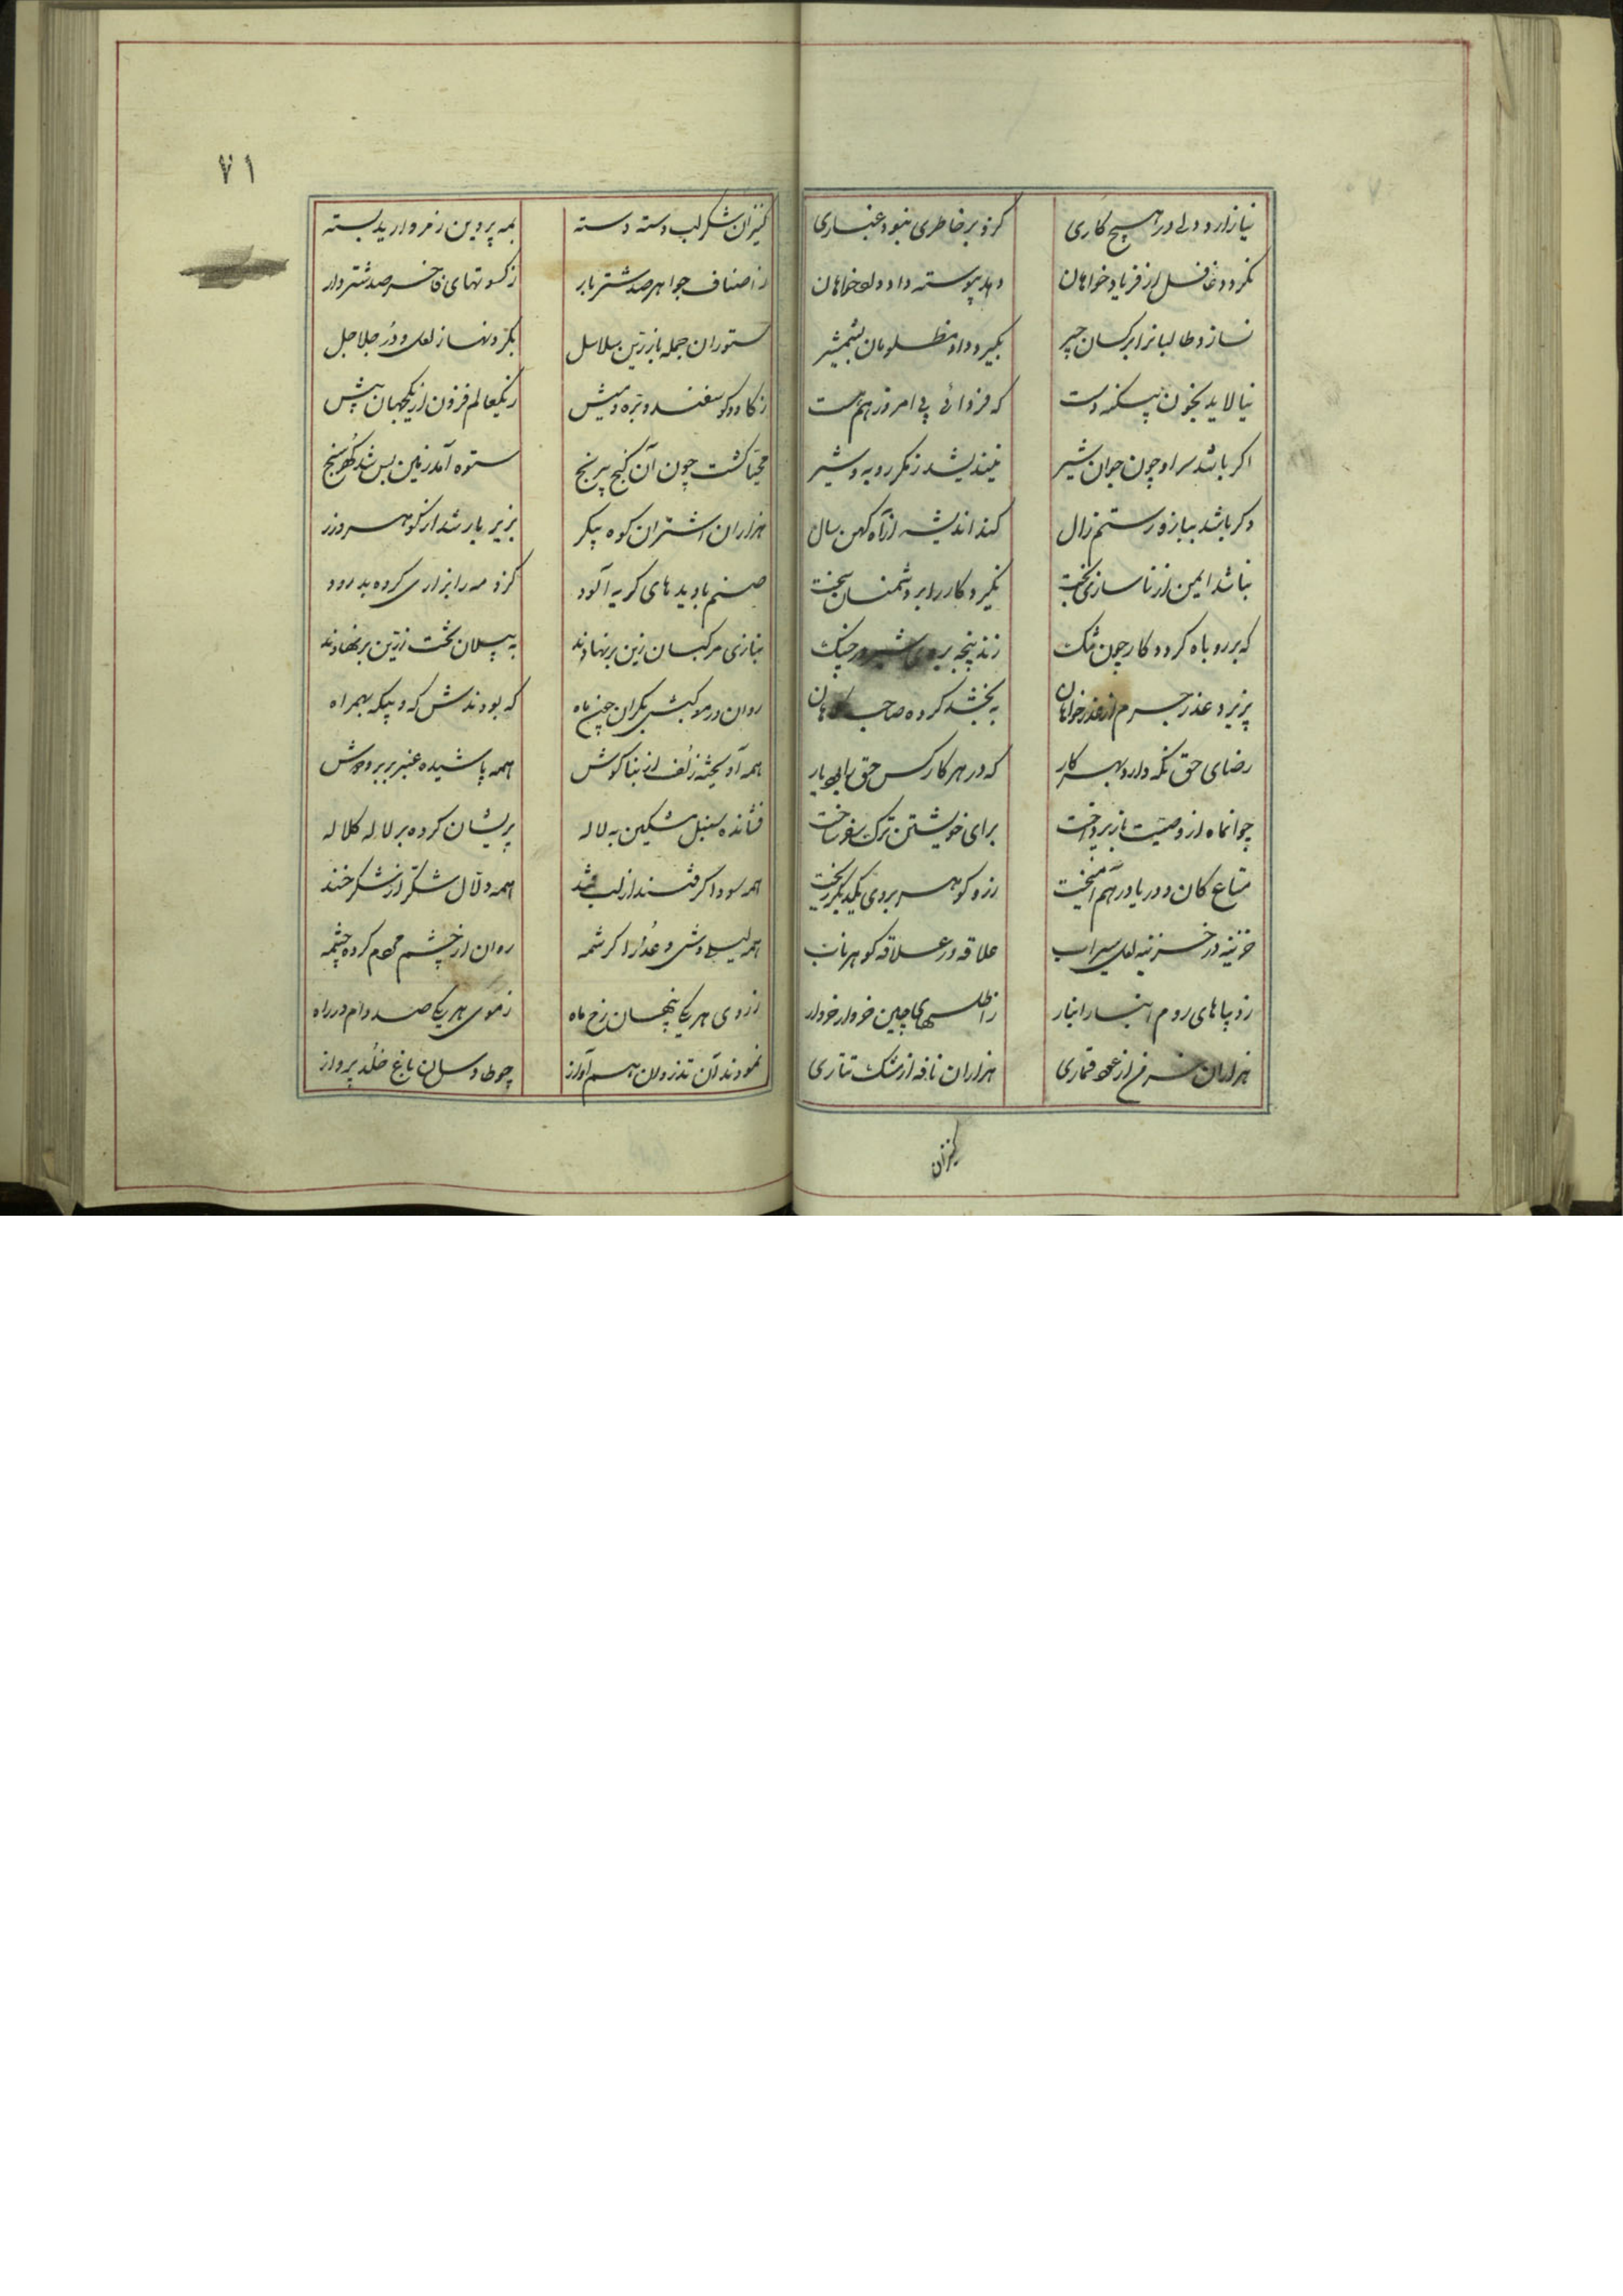 نیازارد دلی در هیچ کاری کزو بر خاطری نبود غباری
نکردد غافل از فریاد خواهان دهد پیوسته داد دادخواهان
نسازد ظالمانرا بر کسان چیر بکیرد داد مظلومان بشمشیر
نیالاید بخون بیکنه دست که فردائی پی امروز هم هست
اکر باشد سر او چون جوان شیر نیندیشد ز مکر روبه پیر
وکر باشد ببازو رستم زال کند اندیشه از آه کهن سال
نباشد ایمن از ناسازی بخت نکیرد کار را بر دشمنان سخت
که بر روباه کردد کار چون تنک زند پنجه بروی شیر در جنک
پزیرد عذر جرم از عذر خواهان ببخشد کرده صاحب کناهان
رضای حق نکه دارد بهر کار که در هر کار کس حق بایدش یار
چو آنماه از وصیت باز پرداخت برای خویشتن ترک سفر ساخت
متاع کان و دریا درهم آمیخت زر و کوهر بروی یکدیکر ریخت
خزینه در خزینه لعل سیراب علاقه در علاقه کوهر ناب
ز دیباهای روم انبار انبار ز اطلسهای چین خروار خروار
هزاران از عود قماری هزاران نافه از مشک تتاری
کنیزان
۷۱
کنیزان شکر لب دسته دسته بمه پروین ز مروارید بسته
ز اصناف جواهر صد شتر بار ز کسوتهای فاخر صد شتروار
ستوران جمله با زرین سلاسل بکردنها ز لعل و در جلاجل
ز کاو و کوسفند و بره و میش ز یکعالم فزون از یکجهان بیش
مهیا کشت چون آن کنج بیرنج ستوه آمد زمین بس شد کهر سنج
هزاران اشتران کوه پیکر بزیر بار شد از کوهر و زر
صنم با دیدهای کریه آلود کزو مه را بزاری کرده بدرود
بتازی مرکبان زین برنهادند به پیلان تخت زرین برنهادند
روان در موکبش بکران چون ماه که بودندش که و بیکه بهمراه
همه آویخته زلف از بناکوش همه پاشیده عنبر بر بر و دوش
فشانده سنبل مشکین به لاله پریشان کرده بر لاله کلاله
همه سوداکر قند از لب قند همه دلال شکر از شکر خند
همه لیلی وش و عذرا کرشمه روان از چشم مردم کرده چشمه
ز روی هر یکی پنهان رخ ماه ز موی هر یکی صد دام در راه
نمودند آن تذروان هم آواز چو طاوسان باغ خلد پرواز